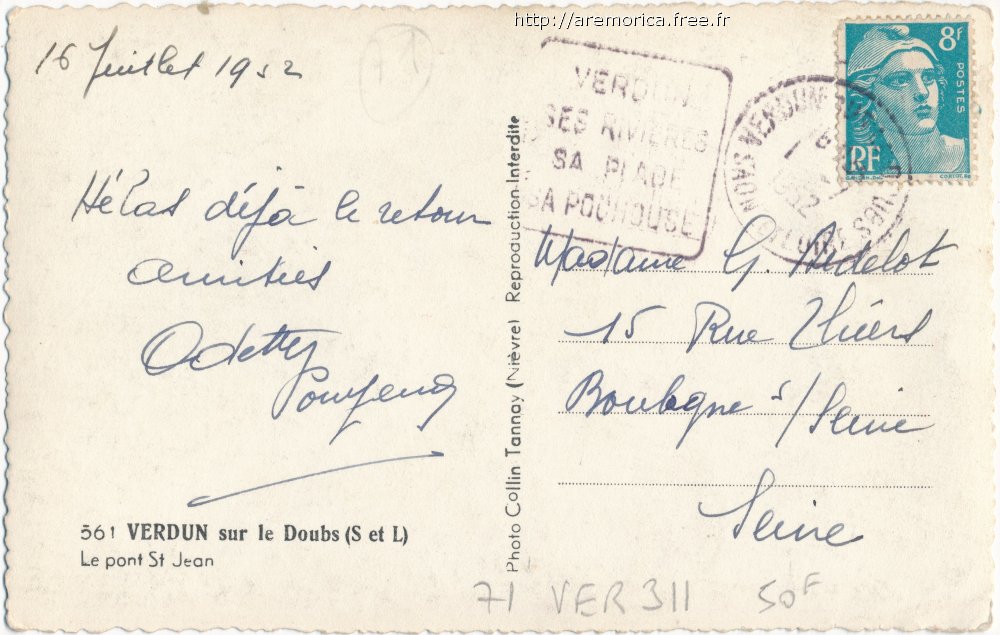 http://aremorica.free.fr
16 Juillet 1952
Hélas déjà le retour
amitiés
Odette
561 VERDUN sur le Doubs (S et L)
Le pont St Jean
Photo Collin Tannay (Nièvre) Reproduction Interdite
VERDUN
SES RIVIÈRES
SA PLAGE
SA POCHOUSE
VERDUN-SUR
SAÔNE ET LOIRE
8F
POSTES
RF
Madame G.
15 Rue Thiers
Boulogne s/Seine
Seine
71 VER 311 50F